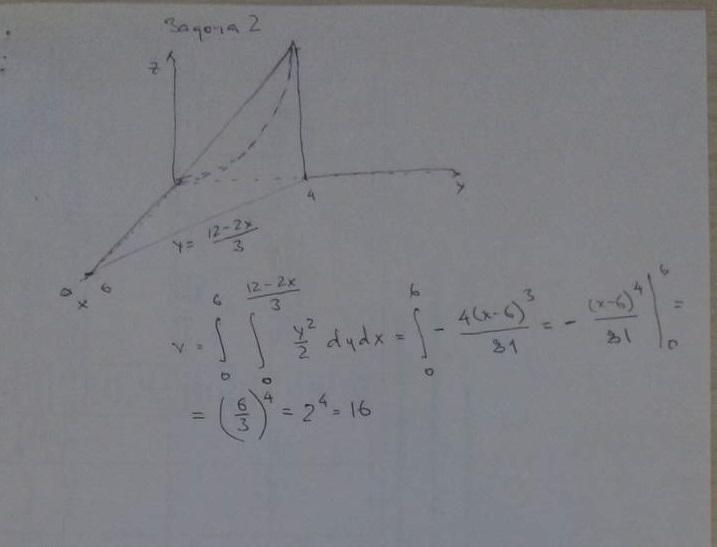 Задача 2
z
4
y
y = \frac{12-2x}{3}
x 6
V = \int_0^6 \int_0^{\frac{12-2x}{3}} \frac{y^2}{2} dydx = \int_0^6 - \frac{4(x-6)^3}{81} = - \frac{(x-6)^4}{81} |_0^6 =
= (\frac{6}{3})^4 = 2^4 = 16